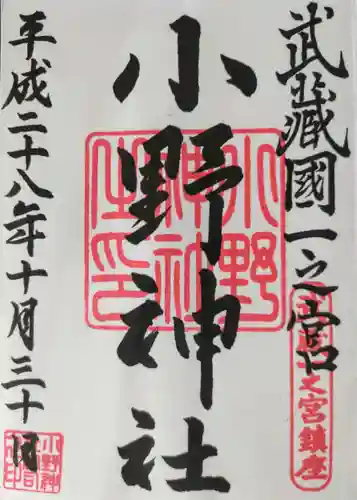 武藏國一之宮
小野神社
平成二十八年十月三十日
小野
神社
之印
文宮鎮座
小野神